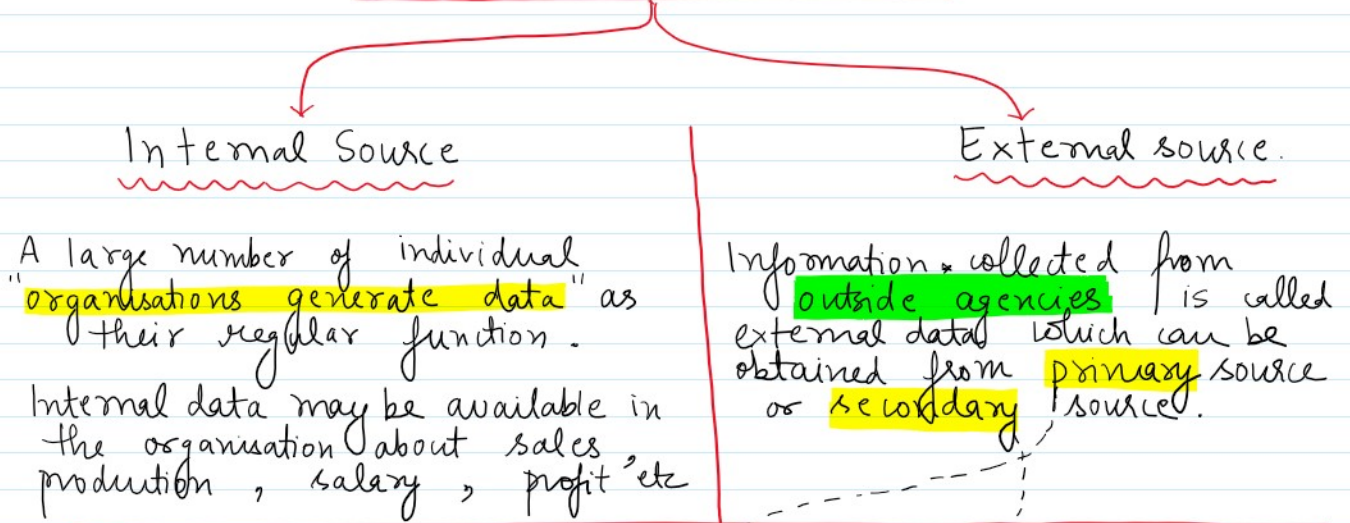 Internal Source
A large number of individual
"organisations generate data" as
their regular function.
Internal data may be available in
the organisation about sales,
production, salary, profit etc
External source.
Information collected from
outside agencies is called
external data which can be
obtained from primary source
or secondary source.